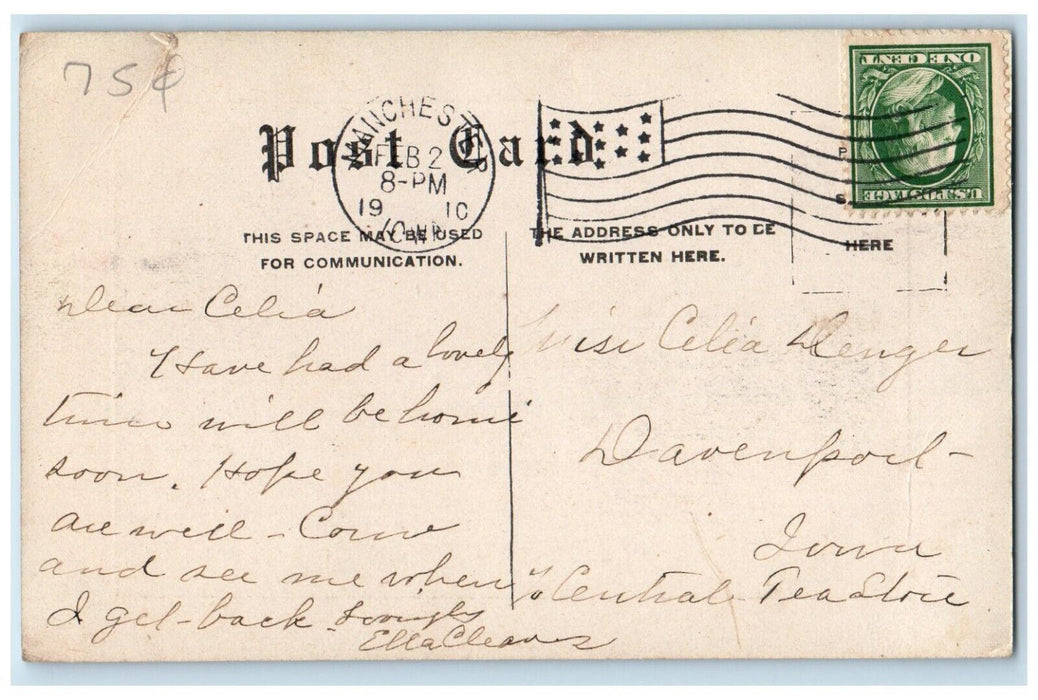 75¢
Post Card
MANCHESTER
FEB 2
8-PM
19 10
IOWA
ONE CENT
U.S. POSTAGE
THIS SPACE MAY BE USED
FOR COMMUNICATION.
THE ADDRESS ONLY TO BE
WRITTEN HERE.
P
S
HERE
Dear Celia
Have had a lovely
time will be home
soon. Hope you
are well - Come
and see me when
I get back
Ella Cleaves
Miss Celia Denger
Davenport
Iowa
c/o Central Tea Store